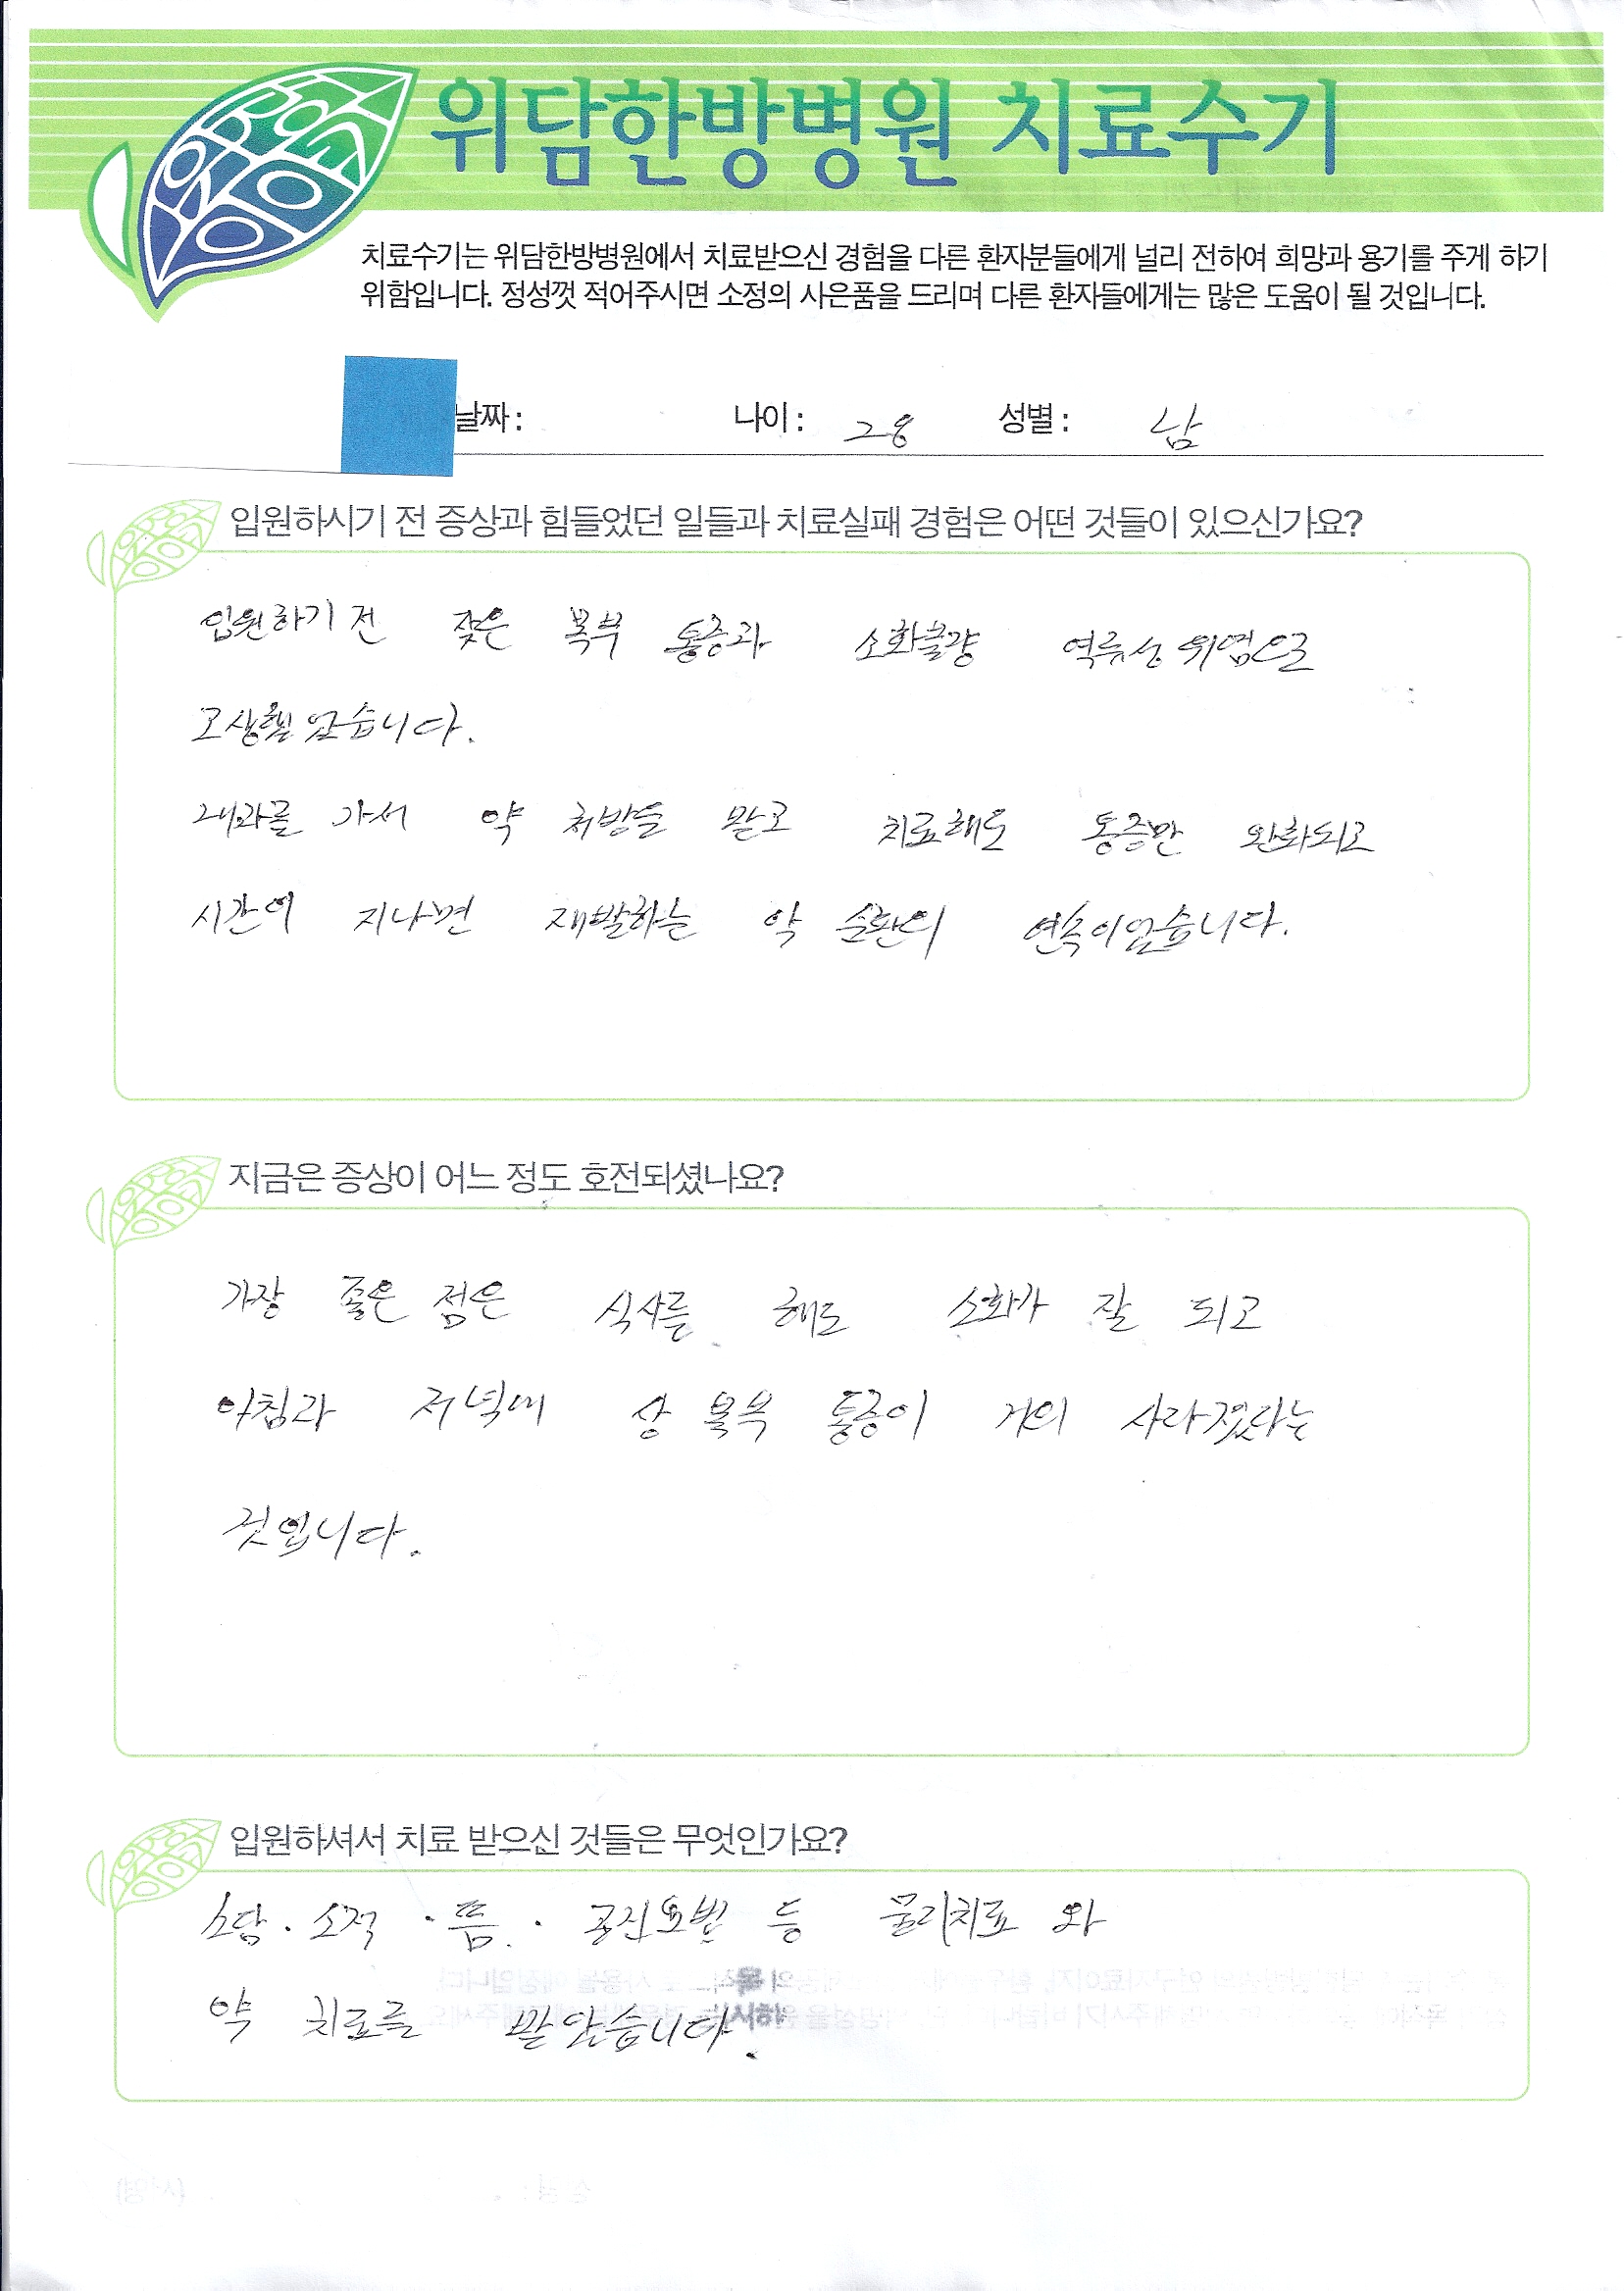 위담한방병원 치료수기
치료수기는 위담한방병원에서 치료받으신 경험을 다른 환자분들에게 널리 전하여 희망과 용기를 주게 하기
위함입니다. 정성껏 적어주시면 소정의 사은품을 드리며 다른 환자들에게는 많은 도움이 될 것입니다.
날짜 : 나이 : 28 성별 : 남
입원하시기 전 증상과 힘들었던 일들과 치료실패 경험은 어떤 것들이 있으신가요?
입원하기 전 잦은 복부 통증과 소화불량 역류성 위염으로
고생했었습니다.
내과를 가서 약 처방을 받고 치료해도 통증만 완화되고
시간이 지나면 재발하는 악 순환의 연속이었습니다.
지금은 증상이 어느 정도 호전되셨나요?
가장 좋은 점은 식사를 해도 소화가 잘 되고
아침과 저녁에 상 복부 통증이 거의 사라졌다는
것입니다.
입원하셔서 치료 받으신 것들은 무엇인가요?
소담 · 소적 · 뜸 · 공진요법 등 물리치료 와
약 치료를 받았습니다.